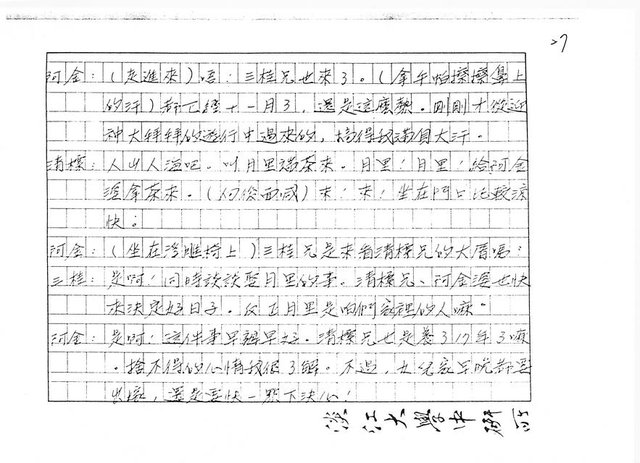 27
阿金：（走進來）唔！三桂兄也來了。（拿手帕擦擦鼻上
的汗）都已經十一月了，還是這麼熱。剛剛才從迎
神大拜拜的遊行中過來的，搞得我滿身大汗。
清標：人山人海吧。叫月里端茶來。月里！月里！給阿金
婆拿茶來。（向後面喊）來！來！坐在門口比較涼
快。
阿金：（坐在椅上）三桂兄是來看清標兄的大厝嗎？
三桂：是啊！同時談談娶月里的事。清標兄、阿金婆也快
來決定好日子。反正月里是咱們家裡的人嘛。
阿金：是啊！這件事早辦早好。清標兄也是養了17年了嘛
。捨不得的心情我很了解。不過，女兒家早晚都要
出嫁，還是要快一點下決心！
淡江大學中研所